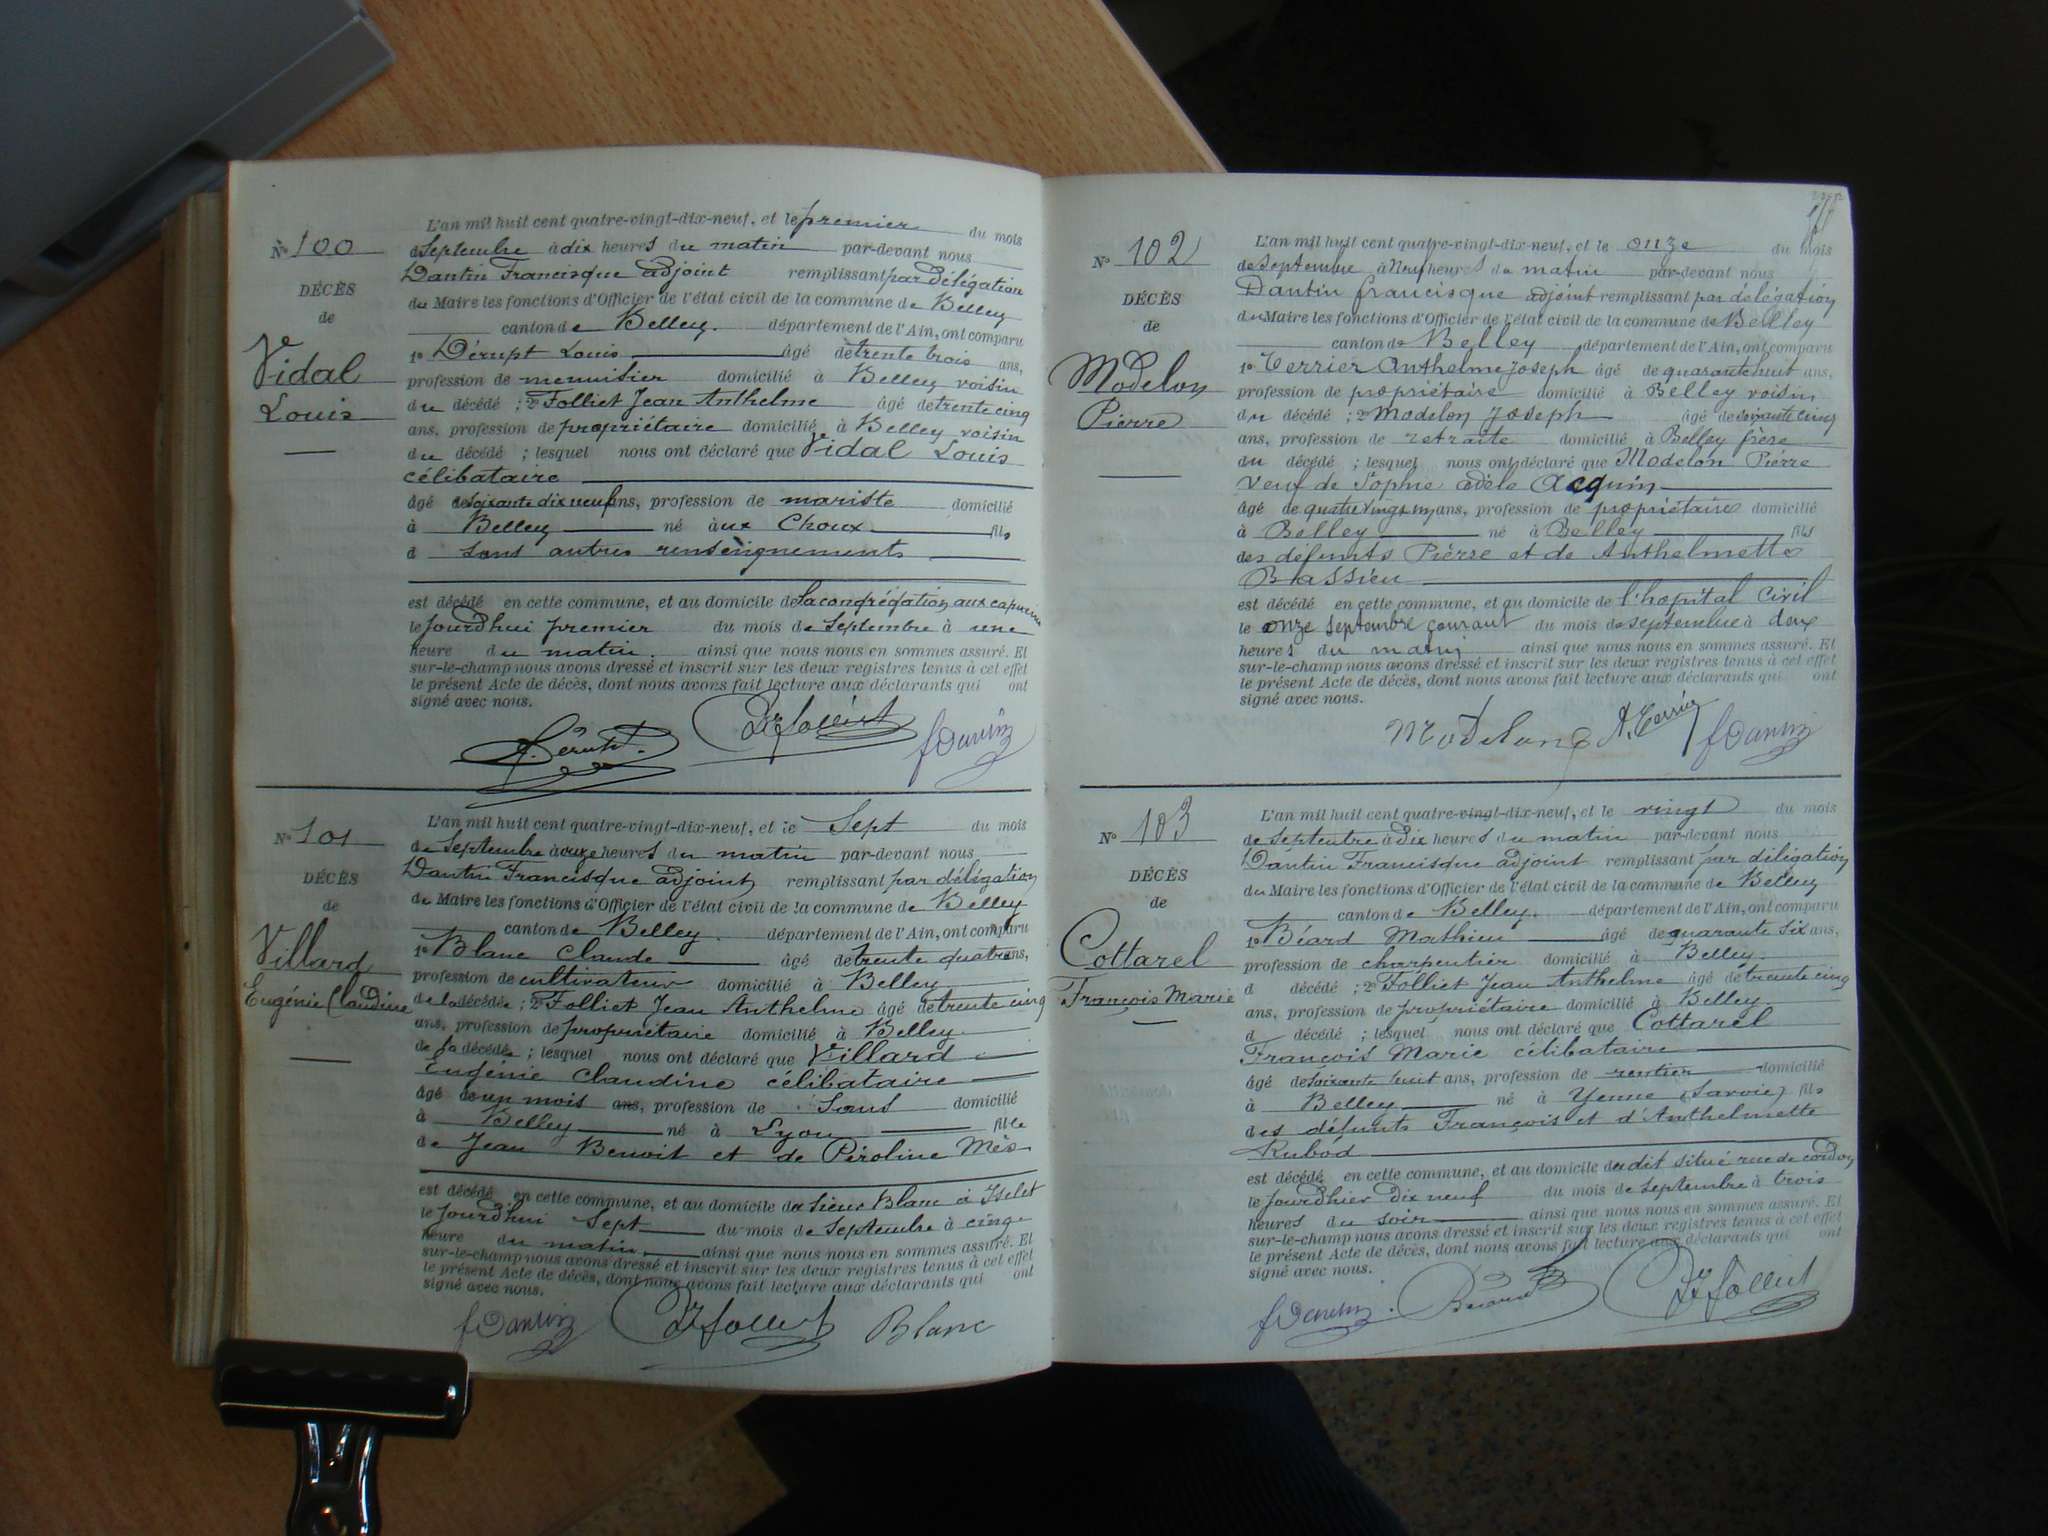 Nº 100
DÉCÈS
de
Vidal
Louis
L'an mil huit cent quatre-vingt-dix-neuf, et le premier du mois
de Septembre à dix heures du matin par-devant nous
Dantin Francisque adjoint remplissant par délégation
du Maire les fonctions d'Officier de l'état civil de la commune de Belley
canton de Belley. département de l'Ain, ont comparu
1º Dérupt Louis âgé de trente trois ans,
profession de menuisier domicilié à Belley voisin
du décédé ; 2º Folliet Jean Anthelme âgé de trente cinq
ans, profession de propriétaire domicilié à Belley voisin
du décédé ; lesquel nous ont déclaré que Vidal Louis
célibataire
âgé de soixante dix neuf ans, profession de mariste domicilié
à Belley né aux Choux fils
d sans autres renseignements
est décédé en cette commune, et au domicile de la congrégation aux capucins
le jourd'hui premier du mois de Septembre à une
heure du matin. ainsi que nous nous en sommes assuré. Et
sur-le-champ nous avons dressé et inscrit sur les deux registres tenus à cet effet
le présent Acte de décès, dont nous avons fait lecture aux déclarants qui ont
signé avec nous.
Folliet fDantin
Nº 101
DÉCÈS
de
Villard
Eugénie Claudine
L'an mil huit cent quatre-vingt-dix-neuf, et le Sept du mois
de Septembre à onze heures du matin par-devant nous
Dantin Francisque adjoint remplissant par délégation
du Maire les fonctions d'Officier de l'état civil de la commune de Belley
canton de Belley. département de l'Ain, ont comparu
1º Blanc Claude âgé de trente quatre ans,
profession de cultivateur domicilié à Belley
de la décédée ; 2º Folliet Jean Anthelme âgé de trente cinq
ans, profession de propriétaire domicilié à Belley
de la décédée ; lesquel nous ont déclaré que Villard
Eugénie Claudine célibataire
âgé de un mois ans, profession de Sans domicilié
à Belley né à Lyon fille
de Jean Benoit et de Péroline Mès
est décédé en cette commune, et au domicile du sieur Blanc à Iselet
le jourd'hui Sept du mois de Septembre à cinq
heure du matin. ainsi que nous nous en sommes assuré. Et
sur-le-champ nous avons dressé et inscrit sur les deux registres tenus à cet effet
le présent Acte de décès, dont nous avons fait lecture aux déclarants qui ont
signé avec nous.
fDantin Folliet Blanc
Nº 102
DÉCÈS
de
Modelon
Pierre
L'an mil huit cent quatre-vingt-dix-neuf, et le onze du mois
de septembre à Neuf heures du matin par-devant nous
Dantin francisque adjoint remplissant par délégation
du Maire les fonctions d'Officier de l'état civil de la commune de Belley
canton de Belley département de l'Ain, ont comparu
1º Terrier Anthelme Joseph âgé de quarante huit ans,
profession de propriétaire domicilié à Belley voisin
du décédé ; 2º Modelon Joseph âgé de soixante cinq
ans, profession de retraite domicilié à Belley frère
du décédé ; lesquel nous ont déclaré que Modelon Pierre
Veuf de Sophie adèle Acquin
âgé de quatre vingt ans, profession de propriétaire domicilié
à Belley né à Belley fils
des défunts Pierre et de Anthelmette
Bassieu
est décédé en cette commune, et au domicile de l'hopital Civil
le onze septembre courant du mois de septembre à deux
heures du matin ainsi que nous nous en sommes assuré. Et
sur-le-champ nous avons dressé et inscrit sur les deux registres tenus à cet effet
le présent Acte de décès, dont nous avons fait lecture aux déclarants qui ont
signé avec nous.
Modelon A. Terrier fDantin
Nº 103
DÉCÈS
de
Cottarel
François Marie
L'an mil huit cent quatre-vingt-dix-neuf, et le vingt du mois
de septembre à dix heures du matin par-devant nous
Dantin Francisque adjoint remplissant par délégation
du Maire les fonctions d'Officier de l'état civil de la commune de Belley
canton de Belley. département de l'Ain, ont comparu
1º Béard Mathieu âgé de quarante six ans,
profession de charpentier domicilié à Belley.
d décédé ; 2º Folliet Jean Anthelme âgé de trente cinq
ans, profession de propriétaire domicilié à Belley.
d décédé ; lesquel nous ont déclaré que Cottarel
François Marie célibataire
âgé de soixante huit ans, profession de rentier domicilié
à Belley né à Yenne (Savoie) fils
des défunts François et d'Anthelmette
Rubod
est décédé en cette commune, et au domicile du dit situé rue de cordon
le jourd'hier dix neuf du mois de septembre à trois
heures du soir ainsi que nous nous en sommes assuré. Et
sur-le-champ nous avons dressé et inscrit sur les deux registres tenus à cet effet
le présent Acte de décès, dont nous avons fait lecture aux déclarants qui ont
signé avec nous.
fDantin Folliet